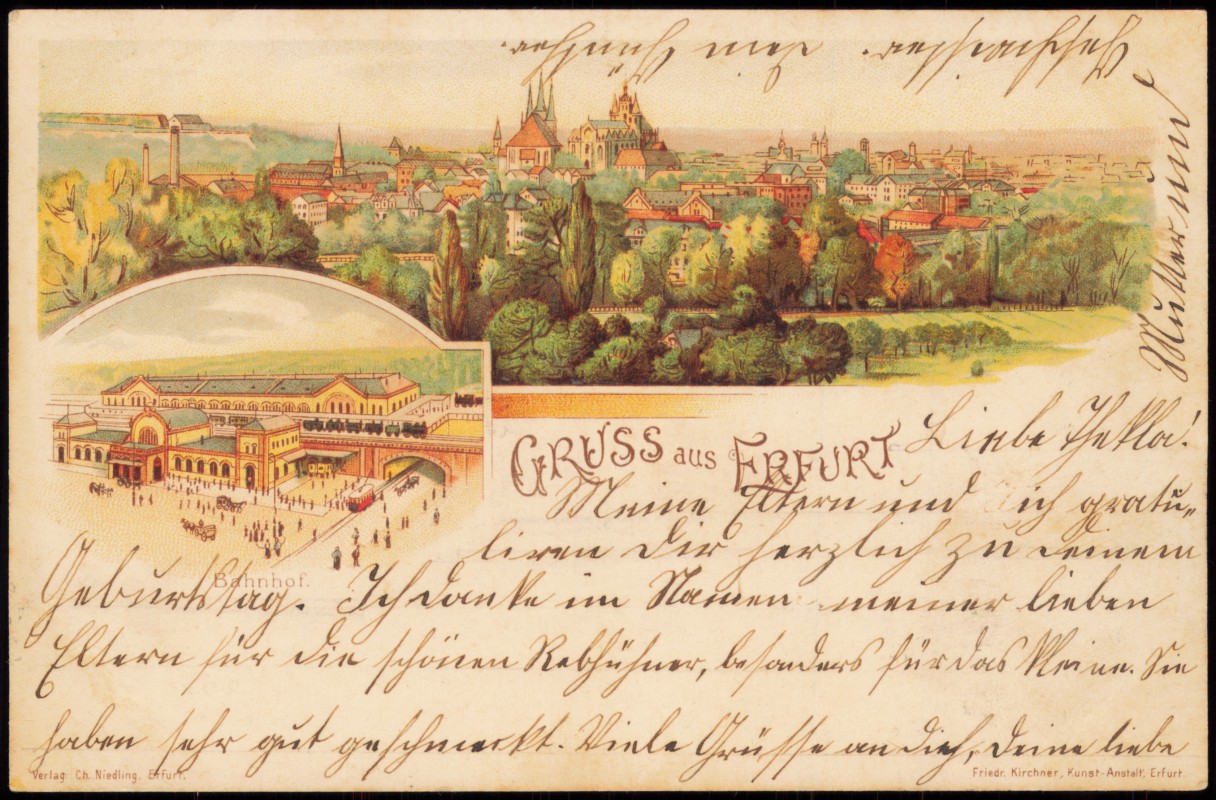 GRUSS aus ERFURT
Bahnhof.
Liebe Thekla!
Meine Eltern und ich gratu-
liren Dir herzlich zu deinem
Geburtstag. Ich danke im Namen meiner lieben
Eltern für die schönen Rebhühner, besonders für das Kleine. Sie
haben sehr gut geschmeckt. Viele Grüsse an dich, deine liebe
Mutter und
Geschwister.
Verlag: Ch. Niedling, Erfurt.
Friedr. Kirchner, Kunst-Anstalt, Erfurt.